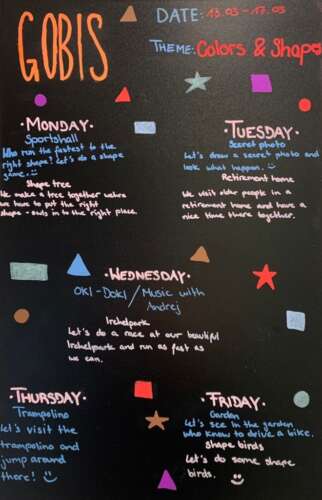 GOBIS
DATE: 13.03 - 17.03
THEME: Colors & Shapes
· MONDAY ·
Sportshall
Who run the fastest to the
right shape? Let's do a shape
game.
Shape tree
We make a tree together where
we have to put the right
shape - suds in to the right place.
· TUESDAY ·
Secret photo
Let's draw a secret photo and
look what happen.
Retirement home
We visit older people in a
retirement home and have a
nice time there together.
· WEDNESDAY ·
OKI-DOKI / Music with
Andrej
Irchelpark
Let's do a race at our beautiful
Irchelpark and run as fast as
we can.
· THURSDAY ·
Trampolino
Let's visit the
trampolino and
jump around
there!
· FRIDAY ·
Garden
Let's see in the garden
who know to drive a bike.
Shape birds
Let's do some shape
birds.